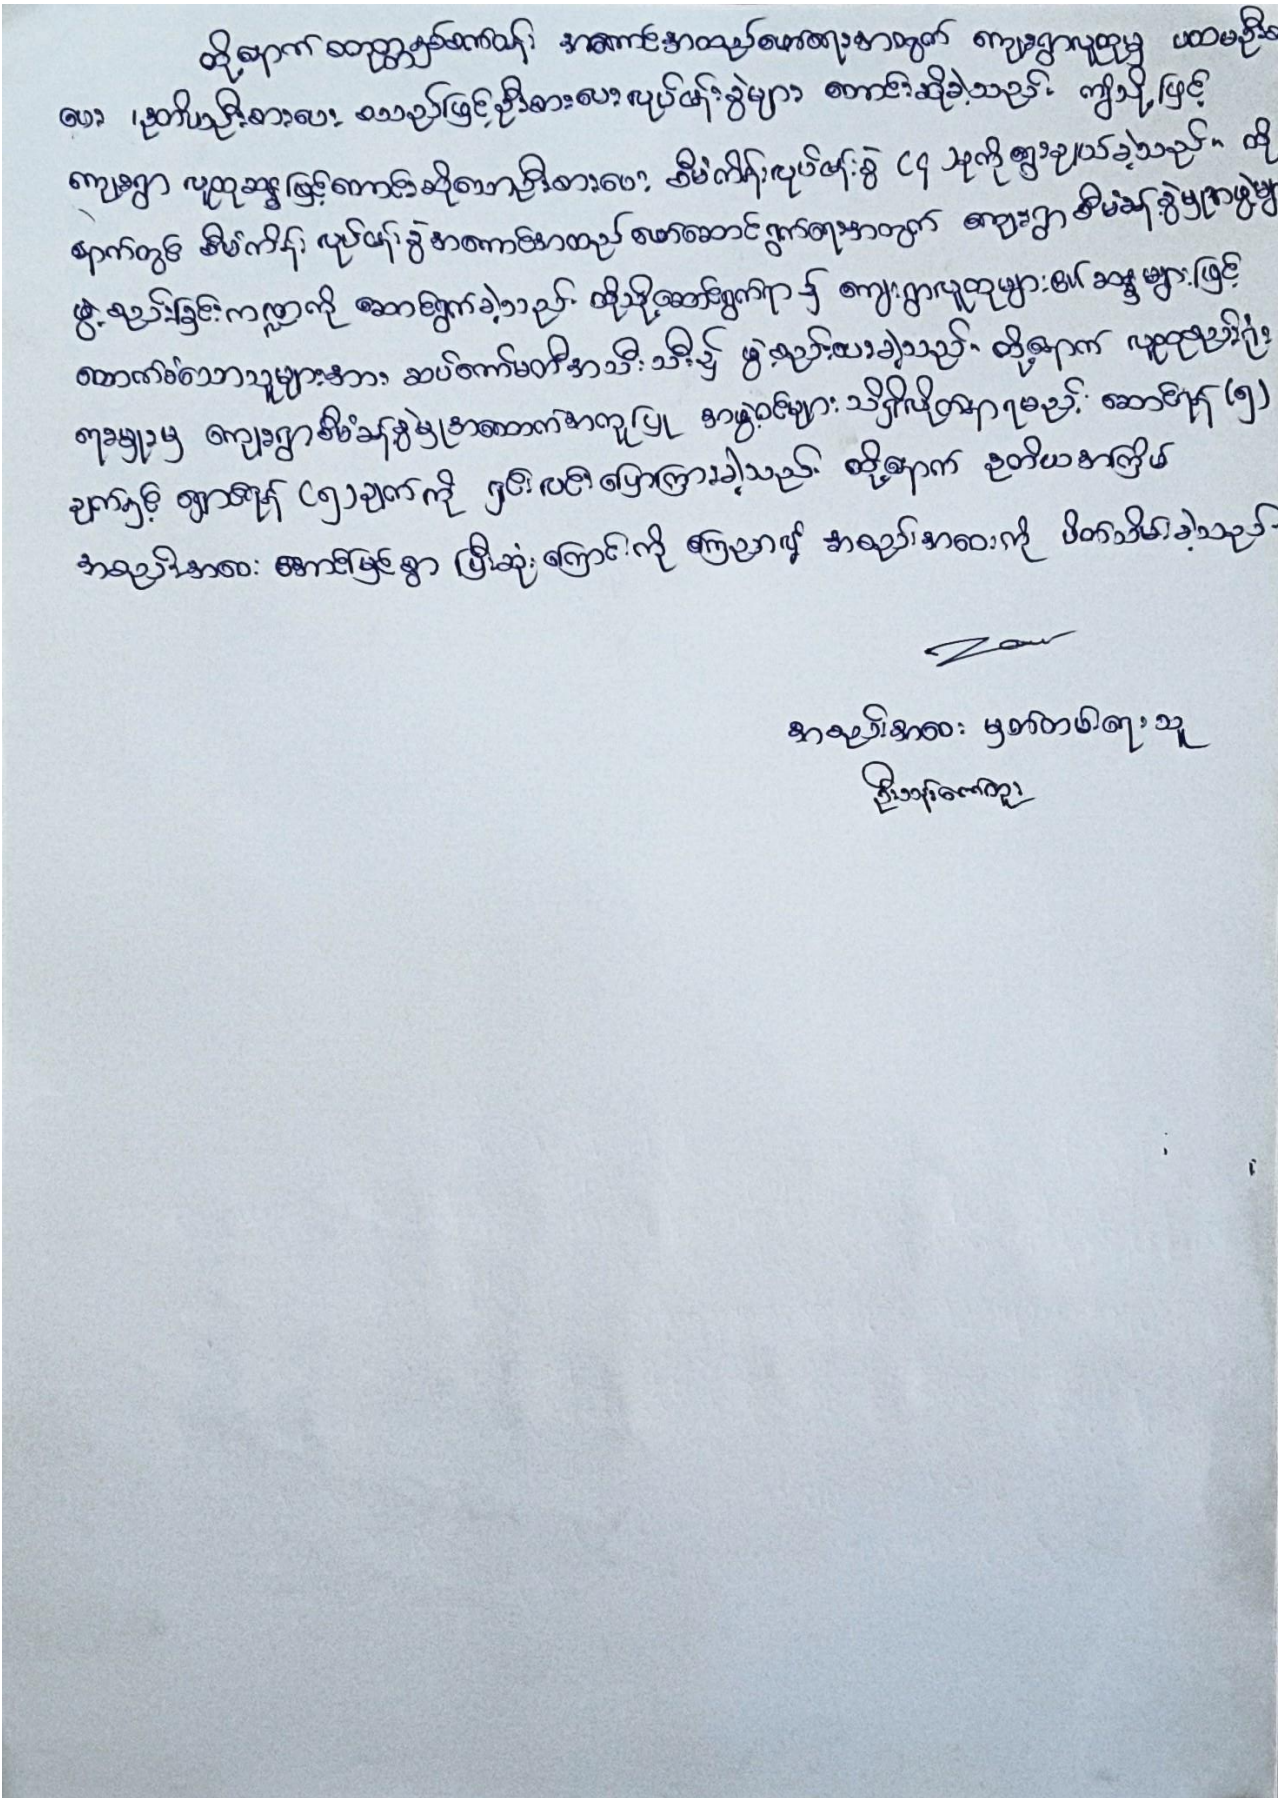 ထို့နောက် စတုတ္ထနှစ်စက်ဝန်း အကောင်အထည်ဖော်ရေးအတွက် ကျေးရွာလူထုမှ ပထမဦးစား
ပေး ၊ ဒုတိယဦးစားပေး စသည်ဖြင့် ဦးစားပေးလုပ်ငန်းခွဲများ တောင်းဆိုခဲ့သည်။ ဤသို့ဖြင့်
ကျေးရွာ လူထုဆန္ဒဖြင့်တောင်းဆိုသောဦးစားပေး စီမံကိန်းလုပ်ငန်းခွဲ (၄) ခုကို ရွေးချယ်ခဲ့သည်။ ထို
နောက်တွင် စီမံကိန်း လုပ်ငန်းခွဲအကောင်အထည် ဖော်ဆောင်ရွက်ရေးအတွက် ကျေးရွာစီမံခန့်ခွဲမှုအဖွဲ့များ
ဖွဲ့စည်းခြင်းကဏ္ဍကို ဆောင်ရွက်ခဲ့သည်။ ထိုသို့ဆောင်ရွက်ရာ၌ ကျေးရွာလူထုများ၏ ဆန္ဒများဖြင့်
ထောက်ခံသောသူများအား ဆပ်ကော်မတီအသီးသီး၌ ဖွဲ့စည်းထားခဲ့သည်။ ထို့နောက် လူထုစည်းရုံး
ရေးမှူးမှ ကျေးရွာစီမံခန့်ခွဲမှုအထောက်အကူပြု အဖွဲ့ဝင်များ သိရှိလိုက်နာရမည့် ဆောင်ရန် (၅)
ချက်နှင့် ရှောင်ရန် (၅) ချက်ကို ရှင်းလင်းပြောကြားခဲ့သည်။ ထို့နောက် ဒုတိယအကြိမ်
အစည်းအဝေး အောင်မြင်စွာ ပြီးဆုံးကြောင်းကို ကြေညာ၍ အစည်းအဝေးကို ပိတ်သိမ်းခဲ့သည်။
အစည်းအဝေး မှတ်တမ်းရေးသူ